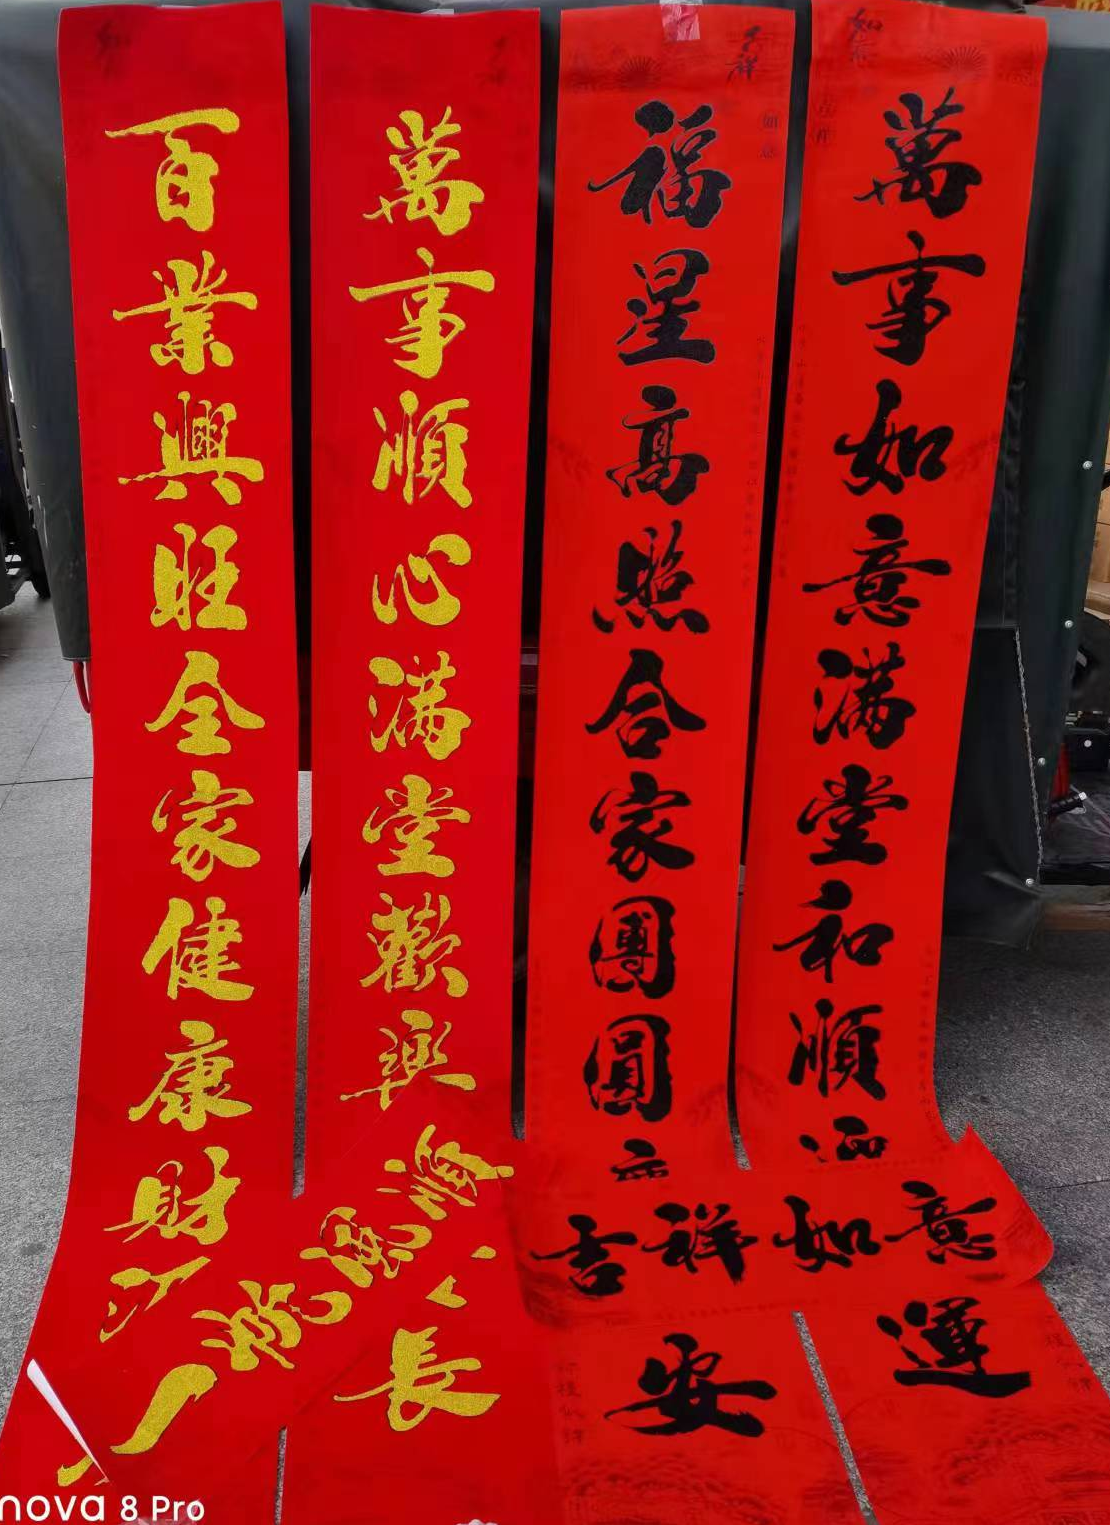 萬事如意满堂和順迎
運
福星高照合家團圓
安
吉祥如意
萬事順心满堂歡樂
長
百業興旺全家健康財
nova 8 Pro